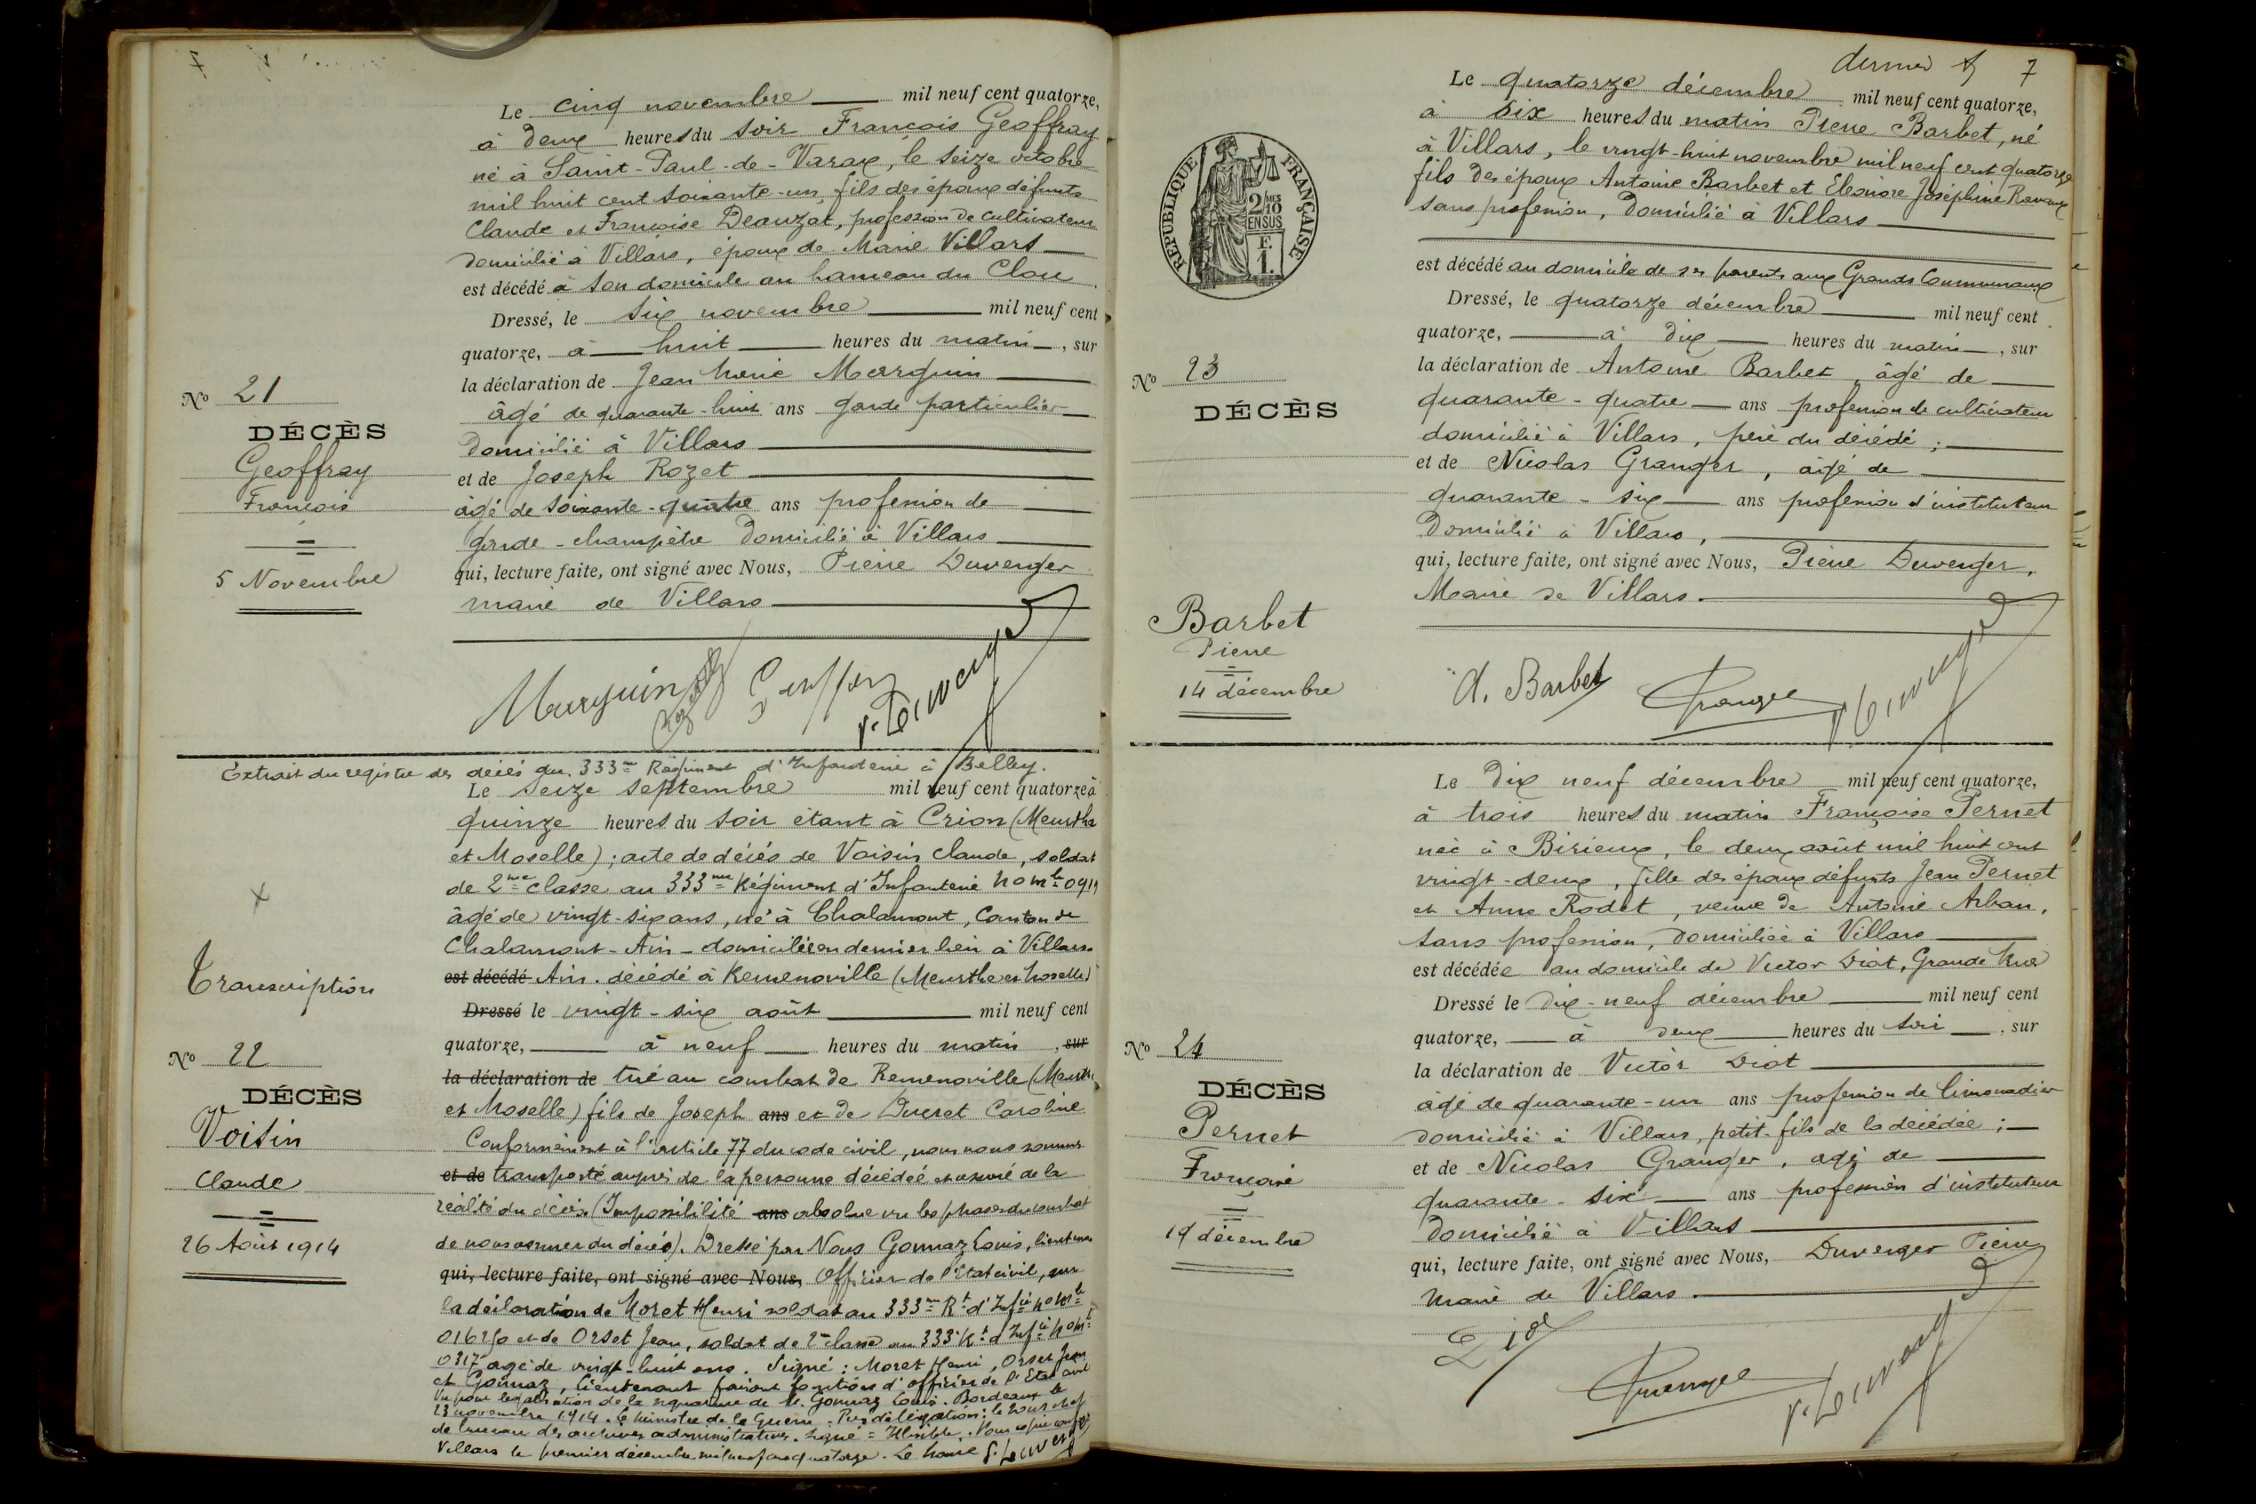 7
Le cinq novembre mil neuf cent quatorze,
à deux heures du soir François Geoffray
né à Saint-Paul-de-Varax, le seize octobre
mil huit cent soixante-un, fils des époux défunts
Claude et Françoise Deauzat, profession de cultivateur
domicilié à Villars, époux de Marie Villars
est décédé à son domicile au hameau du Clou
Dressé, le six novembre mil neuf cent
quatorze, à huit heures du matin, sur
la déclaration de Jean Marie Marguin
âgé de quarante-huit ans garde particulier
domicilié à Villars
et de Joseph Rozet
âgé de soixante-quatre ans profession de
garde-champêtre domicilié à Villars
qui, lecture faite, ont signé avec Nous, Pierre Duverger
maire de Villars
No 21
DÉCÈS
Geoffray
François
5 Novembre
Marguin
Extrait du registre des décès du 333me Régiment d'Infanterie à Belley.
Le seize septembre mil neuf cent quatorze à
quinze heures du soir étant à Crion (Meurthe
et Moselle); acte de décès de Voisin Claude, soldat
de 2me classe au 333me Régiment d'Infanterie
âgé de vingt-six ans, né à Chalamont, Canton de
Chalamont-Ain-domicilié en dernier lieu à Villars
est décédé Ain. décédé à Remenoville (Meurthe et Moselle)
Dressé le vingt-six août mil neuf cent
quatorze, à neuf heures du matin, sur
la déclaration de tué au combat de Remenoville (Meurthe
et Moselle) fils de Joseph ans et de Ducret Caroline
Conformément à l'article 77 du code civil, nous nous sommes
et de transporté auprès de la personne décédée et assuré de la
réalité du décès (Impossibilité ans absolue vu les phases du combat
de nous assurer du décès). Dressé par Nous Gonnaz Louis, lieutenant
qui, lecture faite, ont signé avec Nous, Officier de l'Etat civil, sur
la déclaration de Moret Henri soldat au 333me Rt d'Infie
et de Orset Jean, soldat de 2me classe au 333e Rt d'Infie
âgé de vingt-huit ans. Signé: Moret Henri, Orset Jean
et Gonnaz, lieutenant faisant fonctions d'officier de l'Etat civil
Vu pour légalisation de la signature de M. Gonnaz Louis. Bordeaux le
13 novembre 1914. Le Ministre de la Guerre. Par délégation: le Sous chef
de bureau des archives administratives. Signé = Illisible. Pour copie conforme
Villars le premier décembre mil neuf cent quatorze. Le Maire P. Duverger
Transcription
No 22
DÉCÈS
Voisin
Claude
26 Août 1914
dernier 7
Le quatorze décembre mil neuf cent quatorze,
à six heures du matin Pierre Barbet, né
à Villars, le vingt-huit novembre mil neuf cent quatorze
fils des époux Antoine Barbet et Eléonore Joséphine
sans profession, domicilié à Villars
est décédé au domicile de ses parents aux Grands Communaux
Dressé, le quatorze décembre mil neuf cent
quatorze, à dix heures du matin, sur
la déclaration de Antoine Barbet, âgé de
quarante-quatre ans profession de cultivateur
domicilié à Villars, père du décédé;
et de Nicolas Granger, âgé de
quarante-six ans profession d'instituteur
domicilié à Villars,
qui, lecture faite, ont signé avec Nous, Pierre Duverger,
Maire de Villars.
RÉPUBLIQUE FRANÇAISE
2/10 MES
EN SUS
F.
1.
No 23
DÉCÈS
Barbet
Pierre
14 décembre
A. Barbet Granger P. Duverger
Le dix neuf décembre mil neuf cent quatorze,
à trois heures du matin Françoise Pernet
née à Birieux, le deux août mil huit cent
vingt-deux, fille des époux défunts Jean Pernet
et Anne Rodet, veuve de Antoine Arban,
sans profession, domiciliée à Villars
est décédée au domicile de Victor Diot, Grande Rue
Dressé le dix-neuf décembre mil neuf cent
quatorze, à deux heures du soir, sur
la déclaration de Victor Diot
âgé de quarante-un ans profession de limonadier
domicilié à Villars, petit-fils de la décédée;
et de Nicolas Granger, âgé de
quarante-six ans profession d'instituteur
domicilié à Villars
qui, lecture faite, ont signé avec Nous, Duverger Pierre
Maire de Villars.
No 24
DÉCÈS
Pernet
Françoise
19 décembre
Diot
Granger P. Duverger